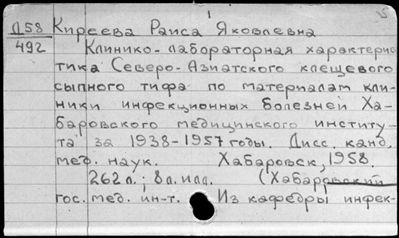 Д58 Киреева Раиса Яковлевна
492 Клинико-лабораторная характерис
тика Северо-Азиатского клещевого
сыпного тифа по материалам кли-
ники инфекционных болезней Ха-
баровского медицинского институ-
та за 1938-1957 годы. Дисс. канд.
мед. наук. Хабаровск, 1958.
262 л.; 8 л. илл. (Хабаровский
гос. мед. ин-т. Из кафедры инфек-